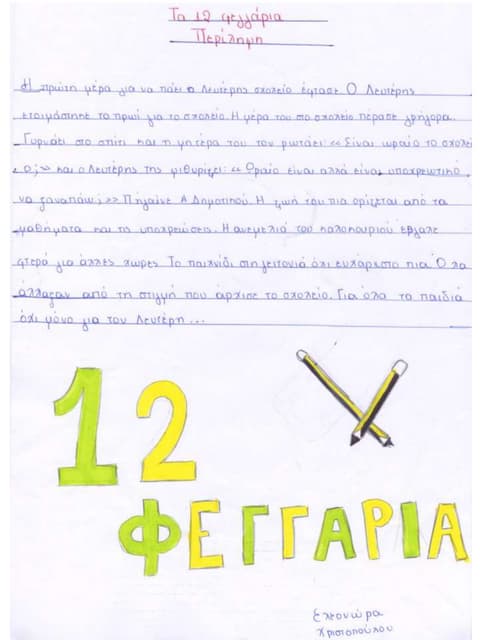 Τα 12 φεγγάρια
Περίληψη
Η πρώτη μέρα για να πάει ο Λευτέρης σχολείο έφτασε. Ο Λευτέρης
ετοιμάστηκε το πρωί για το σχολείο. Η μέρα του στο σχολείο πέρασε γρήγορα.
Γυρνάει στο σπίτι και η μητέρα του τον ρωτάει: «Είναι ωραίο το σχολεί
ο;» και ο Λευτέρης της ψιθυρίζει: «Ωραίο είναι αλλά είναι υποχρεωτικό
να ξαναπάω;» Πήγαινε Α Δημοτικού. Η ζωή του πια ορίζεται από τα
μαθήματα και τις υποχρεώσεις. Η ανεμελιά του καλοκαιριού έβγαλε
φτερά για άλλες χώρες Το παιχνίδι στη γειτονιά όχι ευχάριστο πια. Όλα
άλλαξαν από τη στιγμή που άρχισε το σχολείο. Για όλα τα παιδιά
όχι μόνο για τον Λευτέρη...
12
ΦΕΓΓΑΡΙΑ
Ελεονώρα
Χριστοπούλου